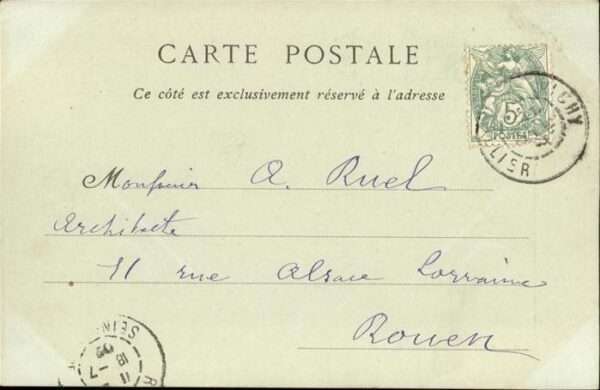 CARTE POSTALE
Ce côté est exclusivement réservé à l'adresse
5c
POSTES
VICHY
Monsieur A. Ruel
Architecte
11 rue Alsace Lorraine
Rouen
SEIN
11
18 -7
03
R